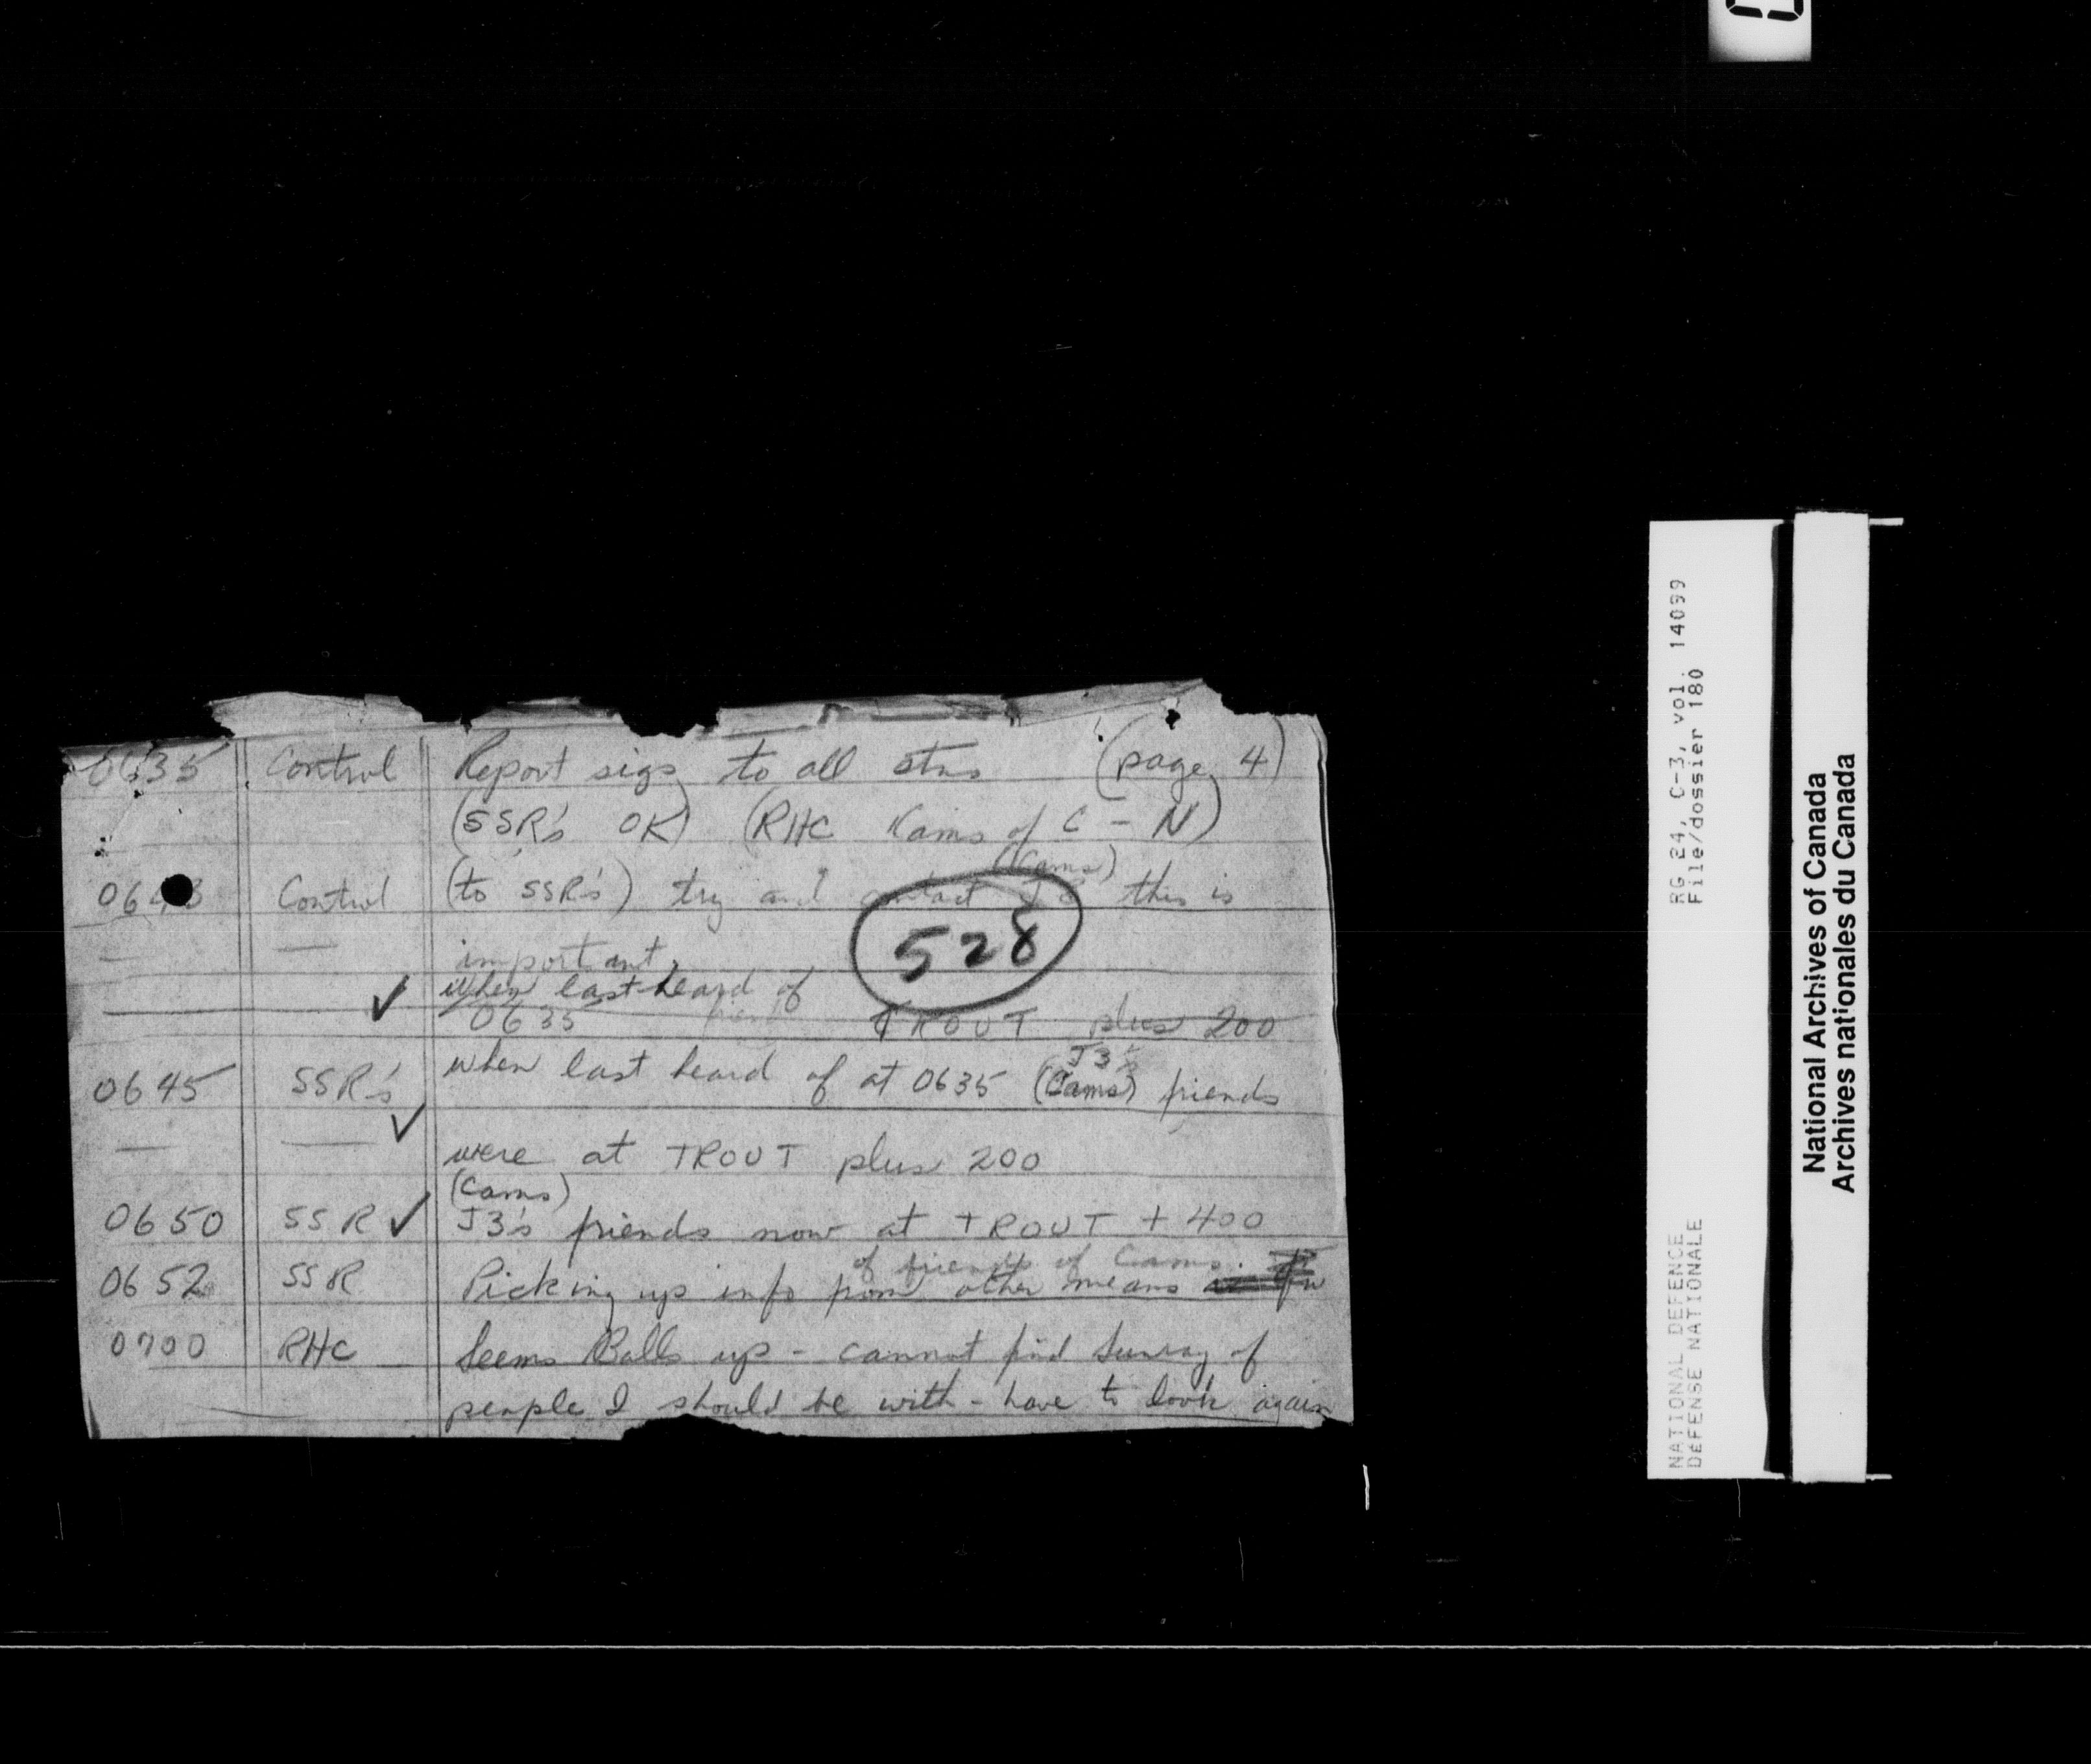 0635 Control Report sigs to all stns (page 4)
(SSR's OK) (RHC Cams of C - N)
(Cams)
Control (to SSR's) try and contact J3 this is
— — important.
528
✓ when last heard of
0635 TROUT plus 200
J3's
0645 SSR's when last heard of at 0635 (Cams) friends
— — ✓ were at TROUT plus 200
(Cams)
0650 SSR ✓ J3's friends now at TROUT + 400
of friends of Cams
0652 SSR Picking up info from other means
0700 RHC Seems Balls up - cannot find Sunray of
people I should be with - have to look again
RG 24, C-3, vol. 14099
File/dossier 180
NATIONAL DEFENCE
DÉFENSE NATIONALE
National Archives of Canada
Archives nationales du Canada